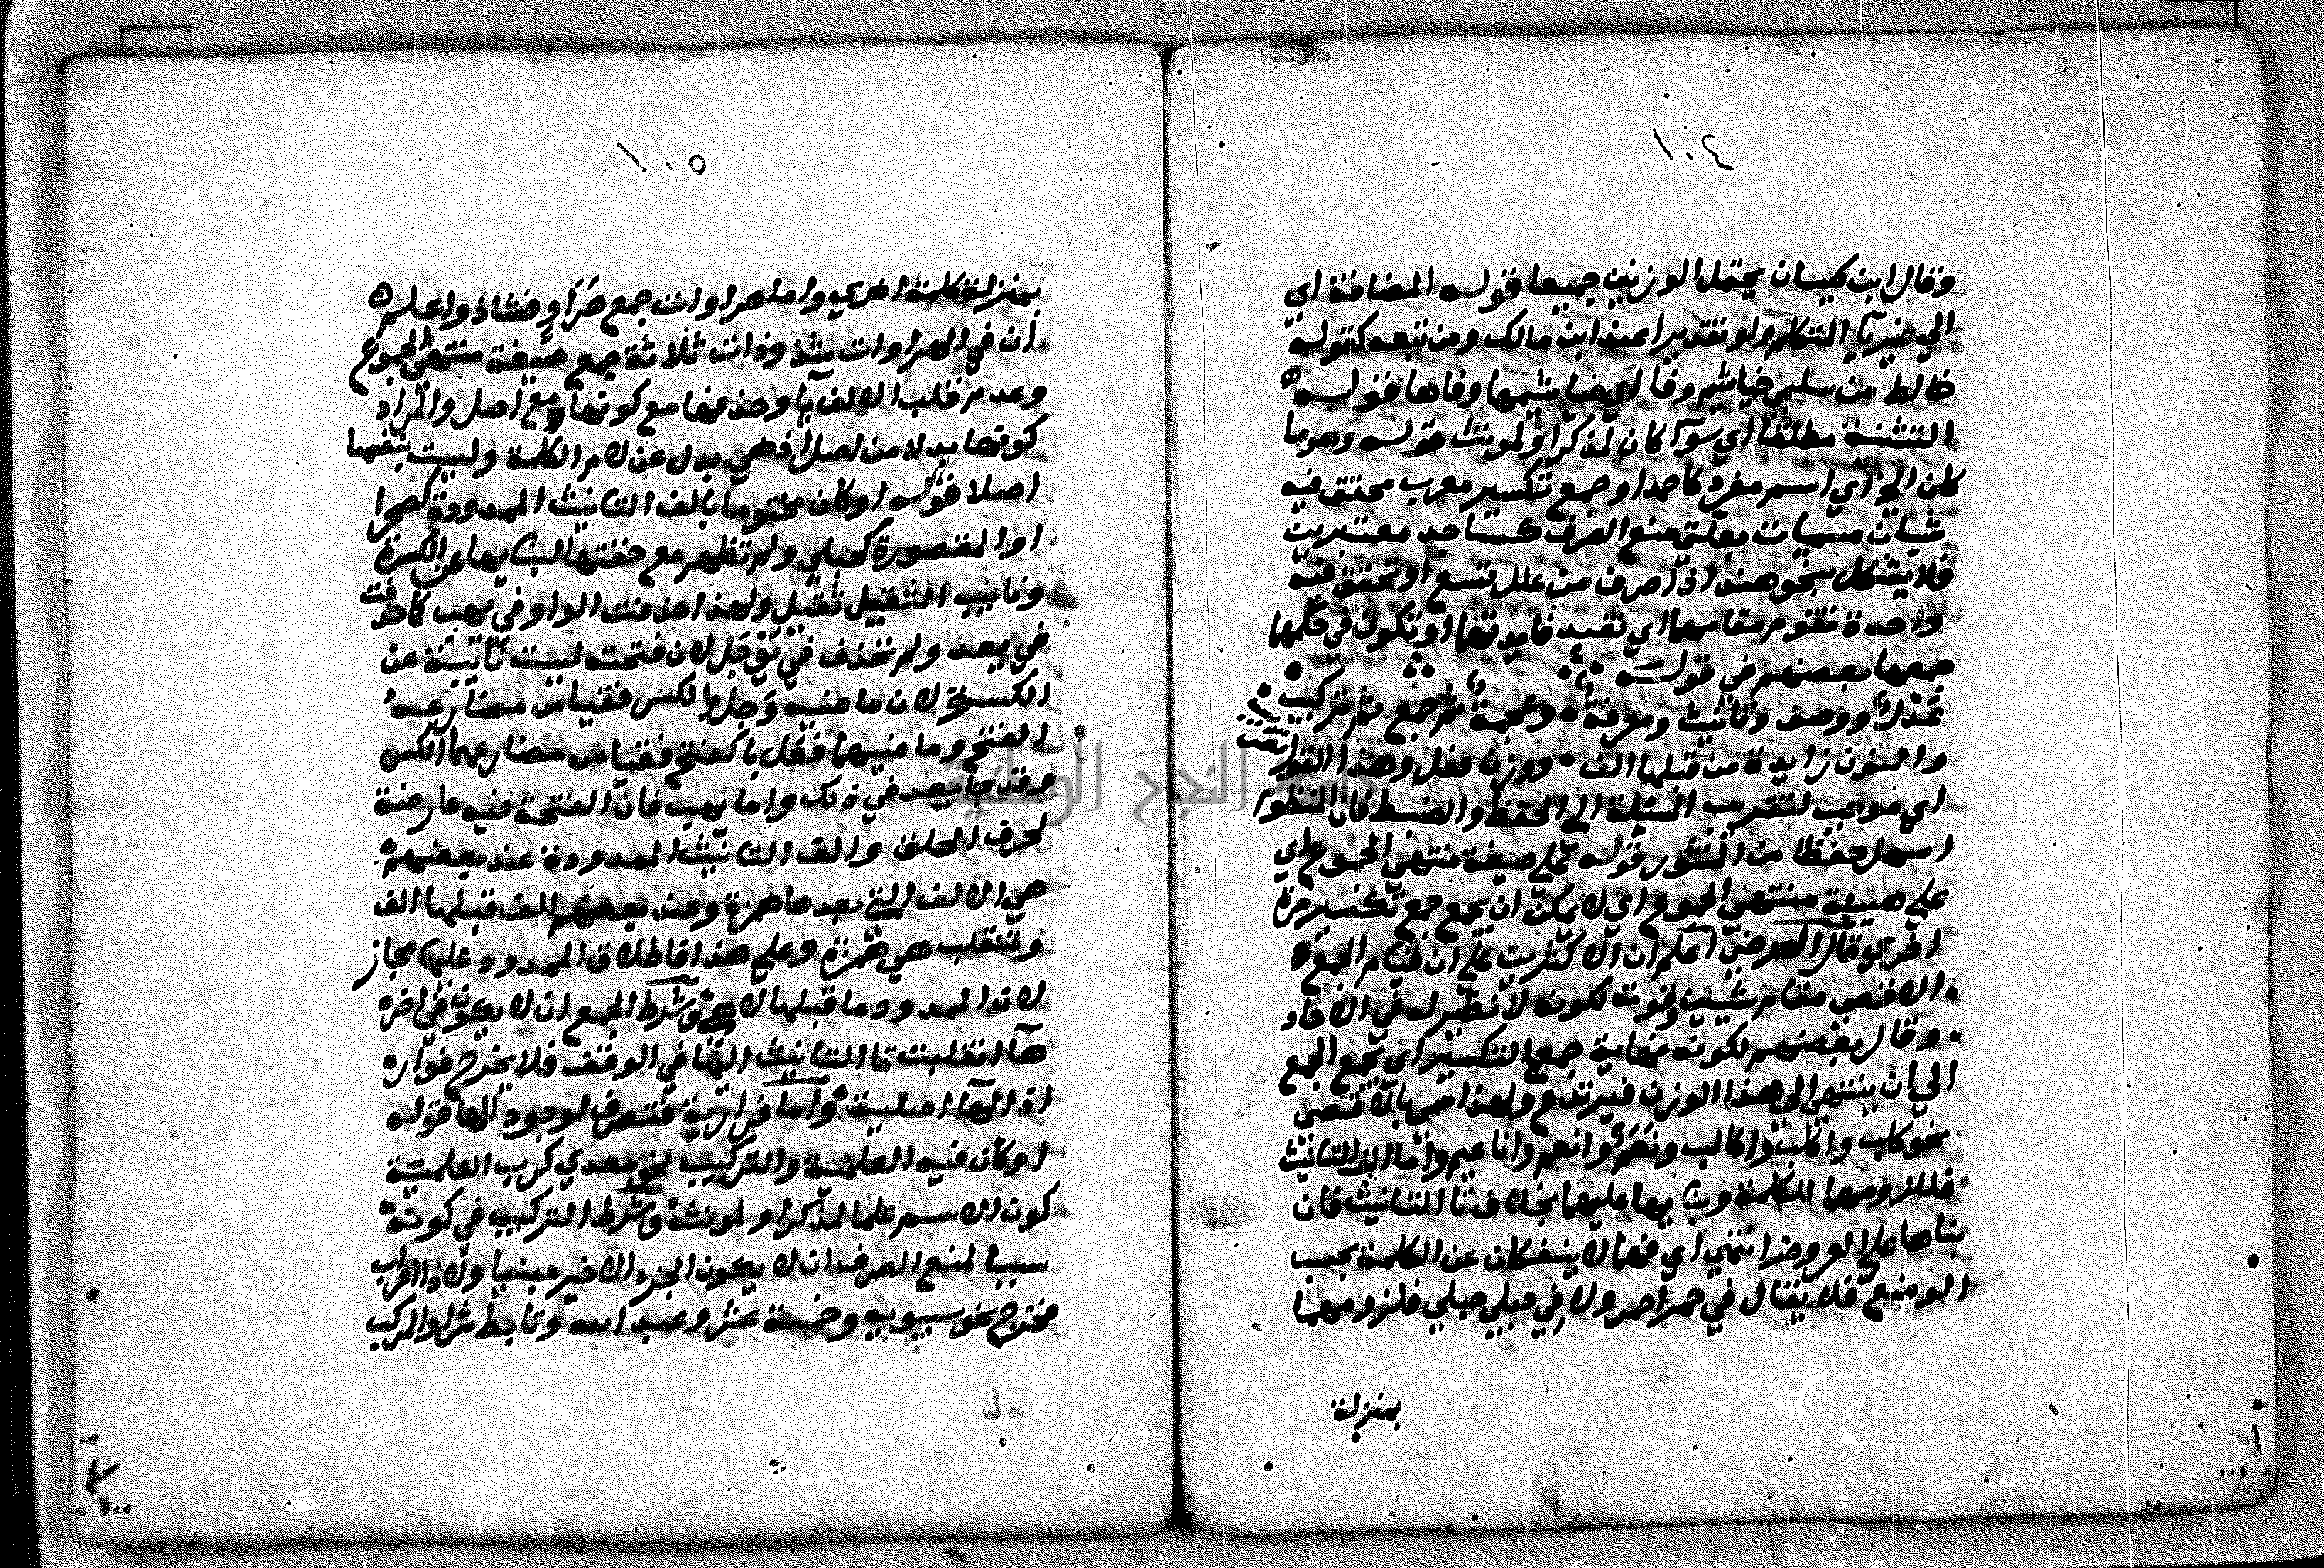 ١٠٤
وقال ابن كيسان يحتمل الوزنين جميعا قوله المضافة اي
الي غير يآ المتكلم ولو تقديرا عند ابن مالك ومن تبعه كقوله
خالط من سلمي خياشيم وفا اي خياشيمها وفاها قوله
التثنية مطلقا اي سوآ كان لمذكر او لمونث قوله وهو ما
كان الخ اي اسم مفرد كاحمد او جمع تكسير معرب محقق فيه
شيان مسميات بعلة منع الصرف كمساجد معتبرين
فلا يشكل بنحو هند اذا صرف من علل تسع او تحقق فيه
واحدة تقوم مقامهما اي تفيد فايدتهما وتكون في حكمها
جمعها بعضهم في قوله
عدل ووصف وتانيث ومعرفة وعجمة ثم جمع ثم تركيب
والنون زايدة من قبلها الف ووزن فعل وهذا القول تقريب
اي موجب لتقريب المسئلة الي الحفظ والضبط فان المنظوم
اسهل حفظا من المنثور قوله علي صيغة منتهي الجموع اي
علي صيغة منتهي الجموع اي لا يمكن ان يجمع جمع تكسير مرة
اخري قال الرضي اعلم ان الاكثرين علي ان قيام الجمع
الاقصي مقام شيين وقوته لكونه لا نظير له في الاحاد
وقال بعضهم لكونه نهاية جمع التكسير اي يجمع الجمع
الي ان ينتهي الي هذا الوزن فيرتدع ولهذا سمي بالاقصي
نحو كلب واكلب واكالب ونعم وانعم واناعيم واما الف التانيث
فللزومها للكلمة وبنآيها عليها بخلاف تا التانيث فان
بناها علي العروض انتهي اي فهما لا ينفكان عن الكلمة بحسب
الوضع فلا يقال في حمرا حمر ولا في حبلي حبل فلزومهما
بمنزلة
١٠٥
بمنزلة كلمة اخري واما صحراوات جمع صحراو فشاذ واعلم
ان في الصحراوات شذوذات ثلاثة جمع صيغة منتهي الجموع
وعدم قلب الالف يآ وحذفها مع كونها مع اصل والمراد
كونها بدلا من اصل اذ هي بدل عن لام الكلمة وليست بنفسها
اصلا قوله او كان مختوما بالف التانيث الممدودة كصحرا
او المقصورة كحبلي ولم تظهر مع خفتها لنيابتها عن الكسرة
ونايب الثقيل ثقيل ولهذا حذفت الواو في يهب كما حذفت
في يعد ولم تحذف في يوجل لان فتحته ليست نائبة عن
الكسرة لان ماضيه وجل بالكسر فقياس مضارعه
الفتح وما ماضيها فعل بالفتح فقياس مضارعها الكسر
وقد جا يعد في ذلك واما يهب فان الفتحة فيه عارضة
لحرف الحلق والف التانيث الممدودة عند بعضهم
هي الالف التي بعدها همزة وعند بعضهم الف قبلها الف
وتنقلب هي همزة وعلي هذا فاطلاق الممدود عليها مجاز
لان الممدود ما قبلها لا هي وشرط الجمع ان لا يكون في اخره
هآ انقلبت تا التانيث اليها في الوقف فلا يخرج فواره
اذ الهآ اصلية واما فرازنة فتصرف لوجود الها قوله
او كان فيه العلمية والتركيب نحو معدي كرب العلمية
كون الاسم علما لمذكر او لمونث وشرط التركيب في كونه
سببا لمنع الصرف ان لا يكون الجزء الاخير مبنيا ولا
فخرج نحو سيبويه وخمسة عشر وعبد الله وتابط شرا والمركب